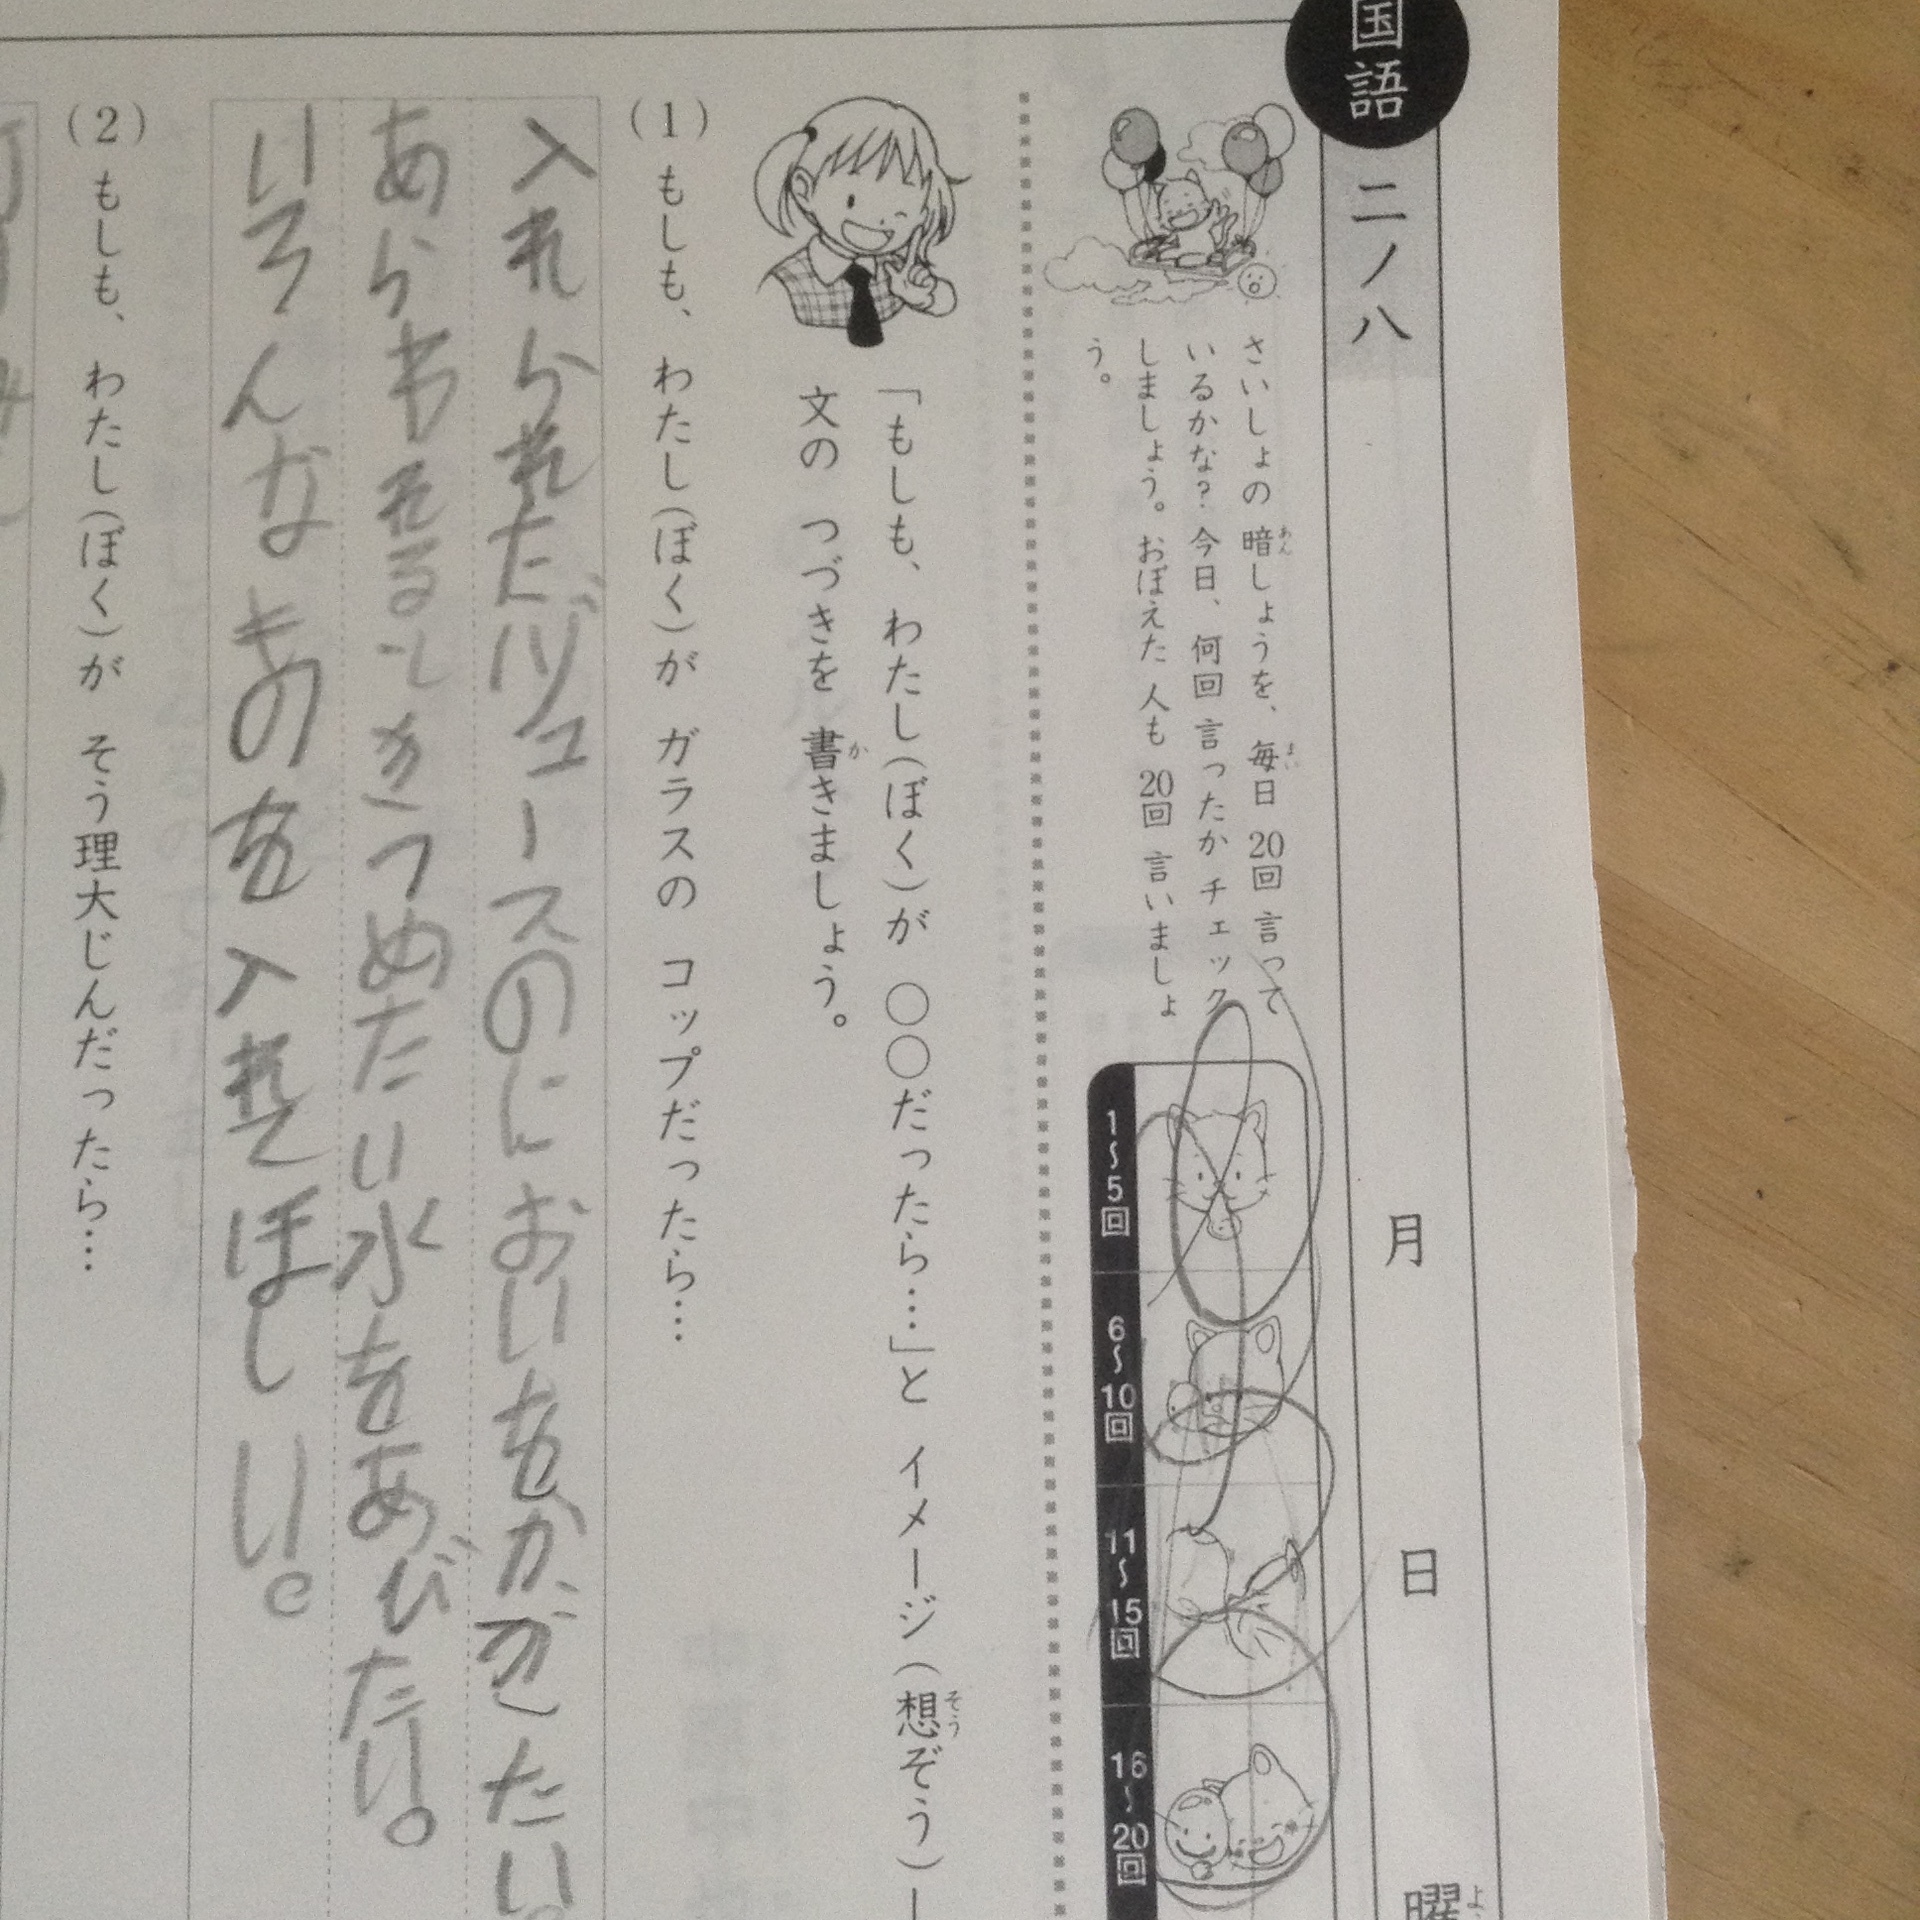 国語
二ノ八
月
日
曜
よ
さいしょの 暗しょうを、毎日 20回 言って
あん
まい
いるかな? 今日、何回 言ったか チェック
しましょう。おぼえた 人も 20回 言いましょ
う。
1〜5回
6〜10回
11〜15回
16〜20回
「もしも、わたし(ぼく)が ○○だったら…」と イメージ(想ぞう)し
そう
文の つづきを 書きましょう。
か
(1) もしも、わたし(ぼく)が ガラスの コップだったら…
入れられたジュースのにおいをかぎたい。
あらわれるときつめたい水をあびたい。
いろんなものを入れてほしい。
(2) もしも、わたし(ぼく)が そう理大じんだったら…